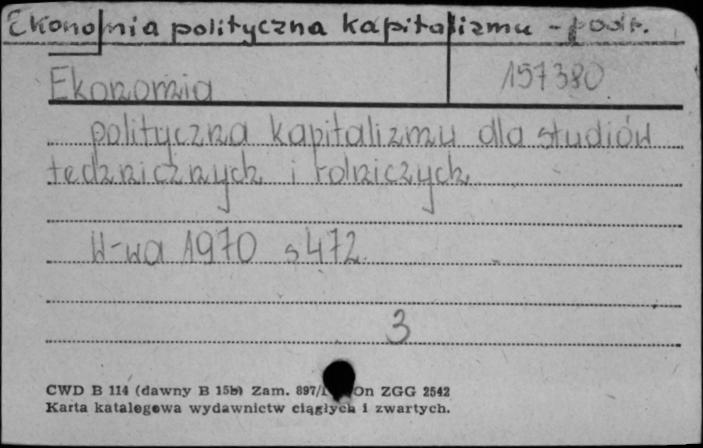 Ekonomia polityczna kapitalizmu - podr.
Ekonomia 157380
polityczna kapitalizmu dla studiów
technicznych i rolniczych
W-wa 1970 s 472
3
CWD B 114 (dawny B 15b) Zam. 897/ On ZGG 2542
Karta katalogowa wydawnictw ciągłych i zwartych.